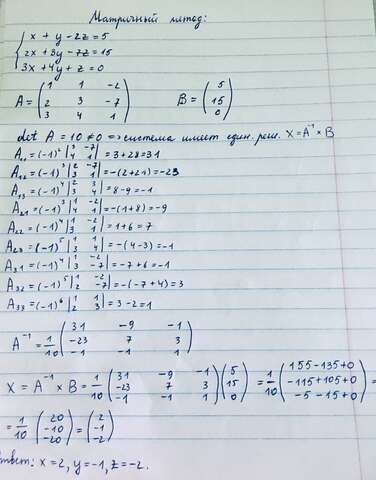 Матричный метод:
x + y - 2z = 5
2x + 3y - 7z = 15
3x + 4y + z = 0
A = (1 1 -2
2 3 -7
3 4 1)
B = (5
15
0)
det A = 10 ≠ 0 => система имеет един. реш. X = A⁻¹ × B
A₁₁ = (-1)² |3 -7; 4 1| = 3 + 28 = 31
A₁₂ = (-1)³ |2 -7; 3 1| = -(2+21) = -23
A₁₃ = (-1)⁴ |2 3; 3 4| = 8 - 9 = -1
A₂₁ = (-1)³ |1 -2; 4 1| = -(1+8) = -9
A₂₂ = (-1)⁴ |1 -2; 3 1| = 1 + 6 = 7
A₂₃ = (-1)⁵ |1 1; 3 4| = -(4-3) = -1
A₃₁ = (-1)⁴ |1 -2; 3 -7| = -7 + 6 = -1
A₃₂ = (-1)⁵ |1 -2; 2 -7| = -(-7+4) = 3
A₃₃ = (-1)⁶ |1 1; 2 3| = 3 - 2 = 1
A⁻¹ = 1/10 (31 -9 -1
-23 7 3
-1 -1 1)
X = A⁻¹ × B = 1/10 (31 -9 -1; -23 7 3; -1 -1 1) (5; 15; 0) = 1/10 (155-135+0; -115+105+0; -5-15+0) =
= 1/10 (20; -10; -20) = (2; -1; -2)
Ответ: x = 2, y = -1, z = -2.